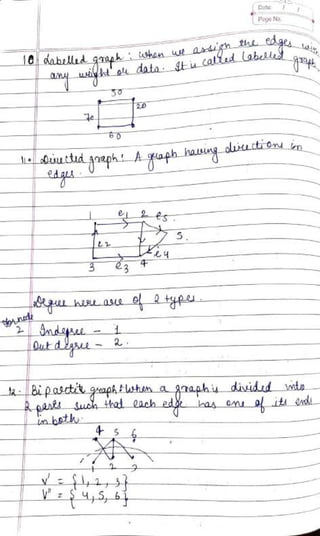 Date / /
Page No.
10. Labelled graph : when we assign the edges with
any weight or data. It is called labelled graph.
50
70 20
60
11. Directed graph : A graph having directions in
edges.
1 e1 2 e5
e2 5.
e4
3 e3 4
Degree here are of 2 types.
for node
2 Indegree - 1
Out degree - 2.
12. Bipartite graph : When a graph is divided into
2 parts such that each edge has one of its ends
in both.
4 5 6
1 2 3
V' = {1, 2, 3}
V" = {4, 5, 6}